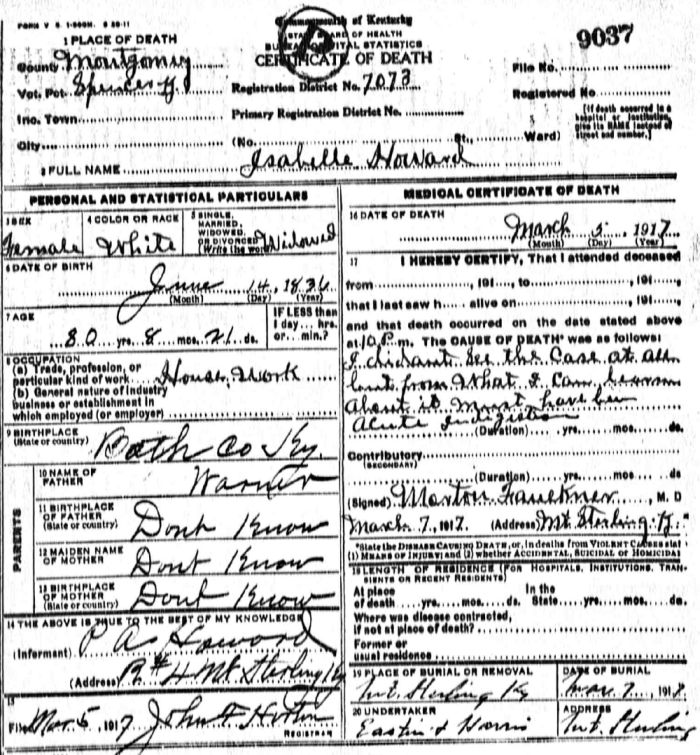 FORM V S. 1-500M. 6 20-11
Commonwealth of Kentucky
STATE BOARD OF HEALTH
BUREAU OF VITAL STATISTICS
CERTIFICATE OF DEATH
1 PLACE OF DEATH
County Montgomery
Vot. Pct. Spencer
Inc. Town
City
9037
File No.
Registered No.
Registration District No. 7073
Primary Registration District No.
(No. St., Ward)
[If death occurred in a hospital or institution, give its NAME instead of street and number.]
2 FULL NAME Isabelle Howard
PERSONAL AND STATISTICAL PARTICULARS
3 SEX Female
4 COLOR OR RACE White
5 SINGLE, MARRIED, WIDOWED, OR DIVORCED (Write the word) Widowed
6 DATE OF BIRTH
June 14, 1836
(Month) (Day) (Year)
7 AGE
80 yrs. 8 mos. 21 ds.
IF LESS than 1 day, hrs. or min.?
8 OCCUPATION
(a) Trade, profession, or particular kind of work House Work
(b) General nature of industry business or establishment in which employed (or employer)
9 BIRTHPLACE
(State or country) Bath Co Ky
PARENTS
10 NAME OF FATHER Warner
11 BIRTHPLACE OF FATHER (State or country) Dont Know
12 MAIDEN NAME OF MOTHER Dont Know
13 BIRTHPLACE OF MOTHER (State or country) Dont Know
14 THE ABOVE IS TRUE TO THE BEST OF MY KNOWLEDGE
(Informant) P A Howard
(Address) R #4 Mt Sterling Ky
15
Filed Mar 5, 1917 John F
REGISTRAR
MEDICAL CERTIFICATE OF DEATH
16 DATE OF DEATH
March 5, 1917
(Month) (Day) (Year)
17 I HEREBY CERTIFY, That I attended deceased
from , 191 , to , 191 ,
that I last saw h alive on , 191 ,
and that death occurred on the date stated above
at 10 P. m. The CAUSE OF DEATH* was as follows:
I did ant See the Case at all
but from What I Can learn
About it Must have been
Acute Indigestion
(Duration) yrs. mos. ds.
Contributory
(SECONDARY)
(Duration) yrs. mos. ds
(Signed) Marton Faulkner, M. D
March 7, 1917 (Address) Mt Sterling Ky.
*State the DISEASE CAUSING DEATH, or, in deaths from VIOLENT CAUSES state (1) MEANS OF INJURY; and (2) whether ACCIDENTAL, SUICIDAL or HOMICIDAL
18 LENGTH OF RESIDENCE (FOR HOSPITALS, INSTITUTIONS, TRANSIENTS OR RECENT RESIDENTS)
At place of death yrs. mos. ds. In the State yrs. mos. ds.
Where was disease contracted,
if not at place of death?
Former or usual residence
19 PLACE OF BURIAL OR REMOVAL
Mt. Sterling Ky
DATE OF BURIAL
Mar. 7, 1917
20 UNDERTAKER
Eastin & Harris
ADDRESS
Mt. Sterling